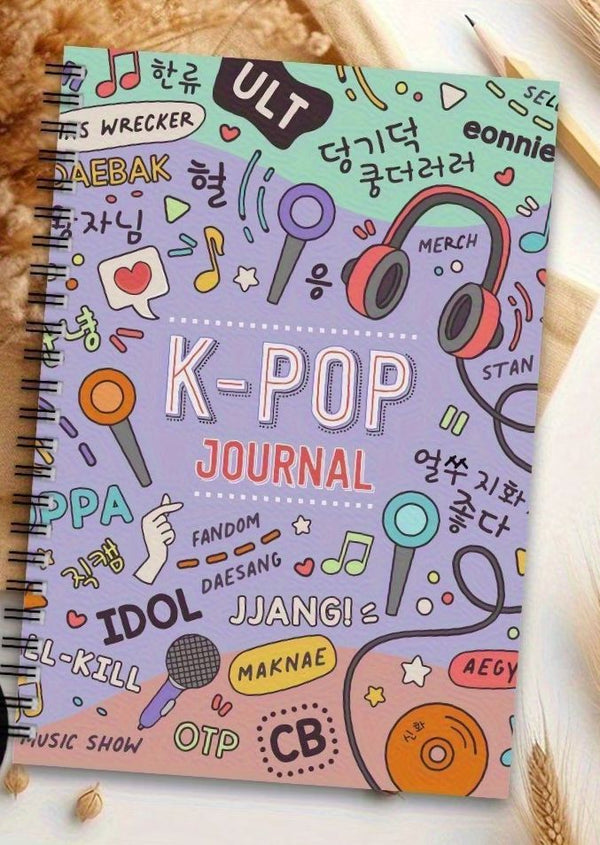 한류
ULT
SEL
S WRECKER
eonnie
덩기덕
쿵더러러
DAEBAK
헐
자님
MERCH
응
녕
K-POP
STAN
JOURNAL
얼쑤 지화
좋다
OPPA
FANDOM
직캠
DAESANG
IDOL
JJANG!
EL-KILL
MAKNAE
AEGY
MUSIC SHOW
OTP
CB
신화